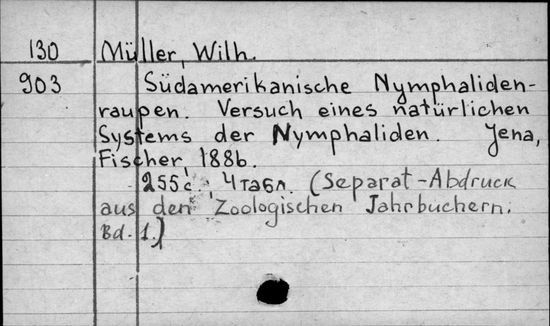 130 Müller, Wilh.
903 Südamerikanische Nymphaliden-
raupen. Versuch eines natürlichen
Systems der Nymphaliden. Jena,
Fischer, 1886.
255 с. 4 табл. (Separat-Abdruck
aus den Zoologischen Jahrbuchern.
Bd. 1.)